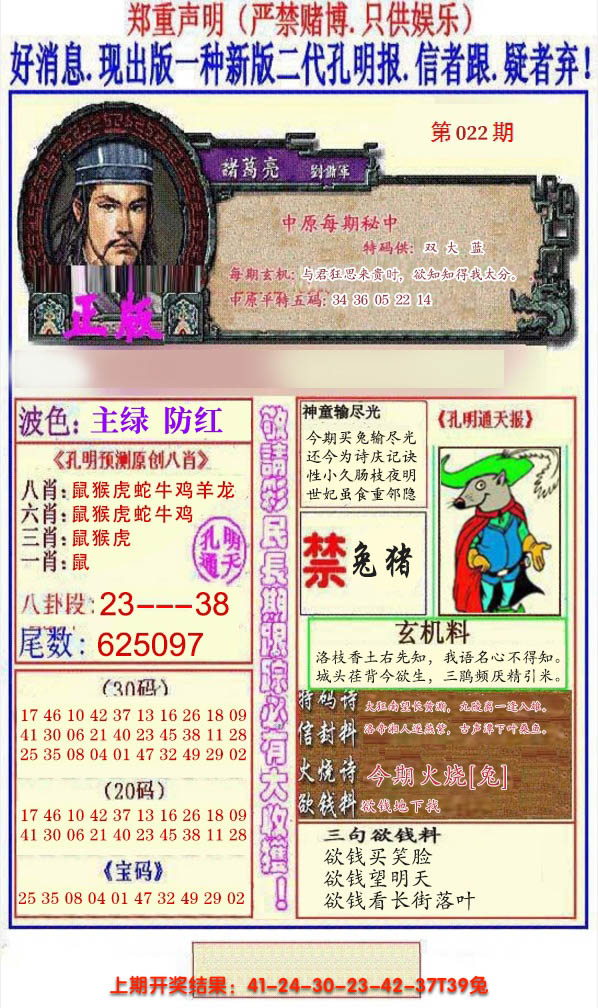 郑重声明（严禁赌博.只供娱乐）
好消息.现出版一种新版二代孔明报.信者跟.疑者弃！
第022期
諸葛亮 劉鏾軍
中原每期秘中
特码供：双 大 蓝
每期玄机：与君狂思来贵时，欲知知得我太分。
中原平特五码：34 36 05 22 14
正版
波色：主绿 防红
《孔明预测原创八肖》
八肖：鼠猴虎蛇牛鸡羊龙
六肖：鼠猴虎蛇牛鸡
三肖：鼠猴虎
一肖：鼠
孔明
通天
八卦段：23---38
尾数：625097
（30码）
17 46 10 42 37 13 16 26 18 09
41 30 06 21 40 23 45 38 11 28
25 35 08 04 01 47 32 49 29 02
（20码）
17 46 10 42 37 13 16 26 18 09
41 30 06 21 40 23 45 38 11 28
《宝码》
25 35 08 04 01 47 32 49 29 02
敬請彩民長期跟踪必有大收獲！
神童输尽光
今期买兔输尽光
还今为诗庆记诀
性小久肠枝夜明
世妃虽食重邻隐
《孔明通天报》
禁 兔猪
玄机料
洛枝香土右先知，我语名心不得知。
城头茬背今欲生，三鹃频厌精引米。
特码诗
信封料
火烧诗 今期火烧[兔]
欲钱料 欲钱地下找
三句欲钱料
欲钱买笑脸
欲钱望明天
欲钱看长街落叶
上期开奖结果：41-24-30-23-42-37T39兔